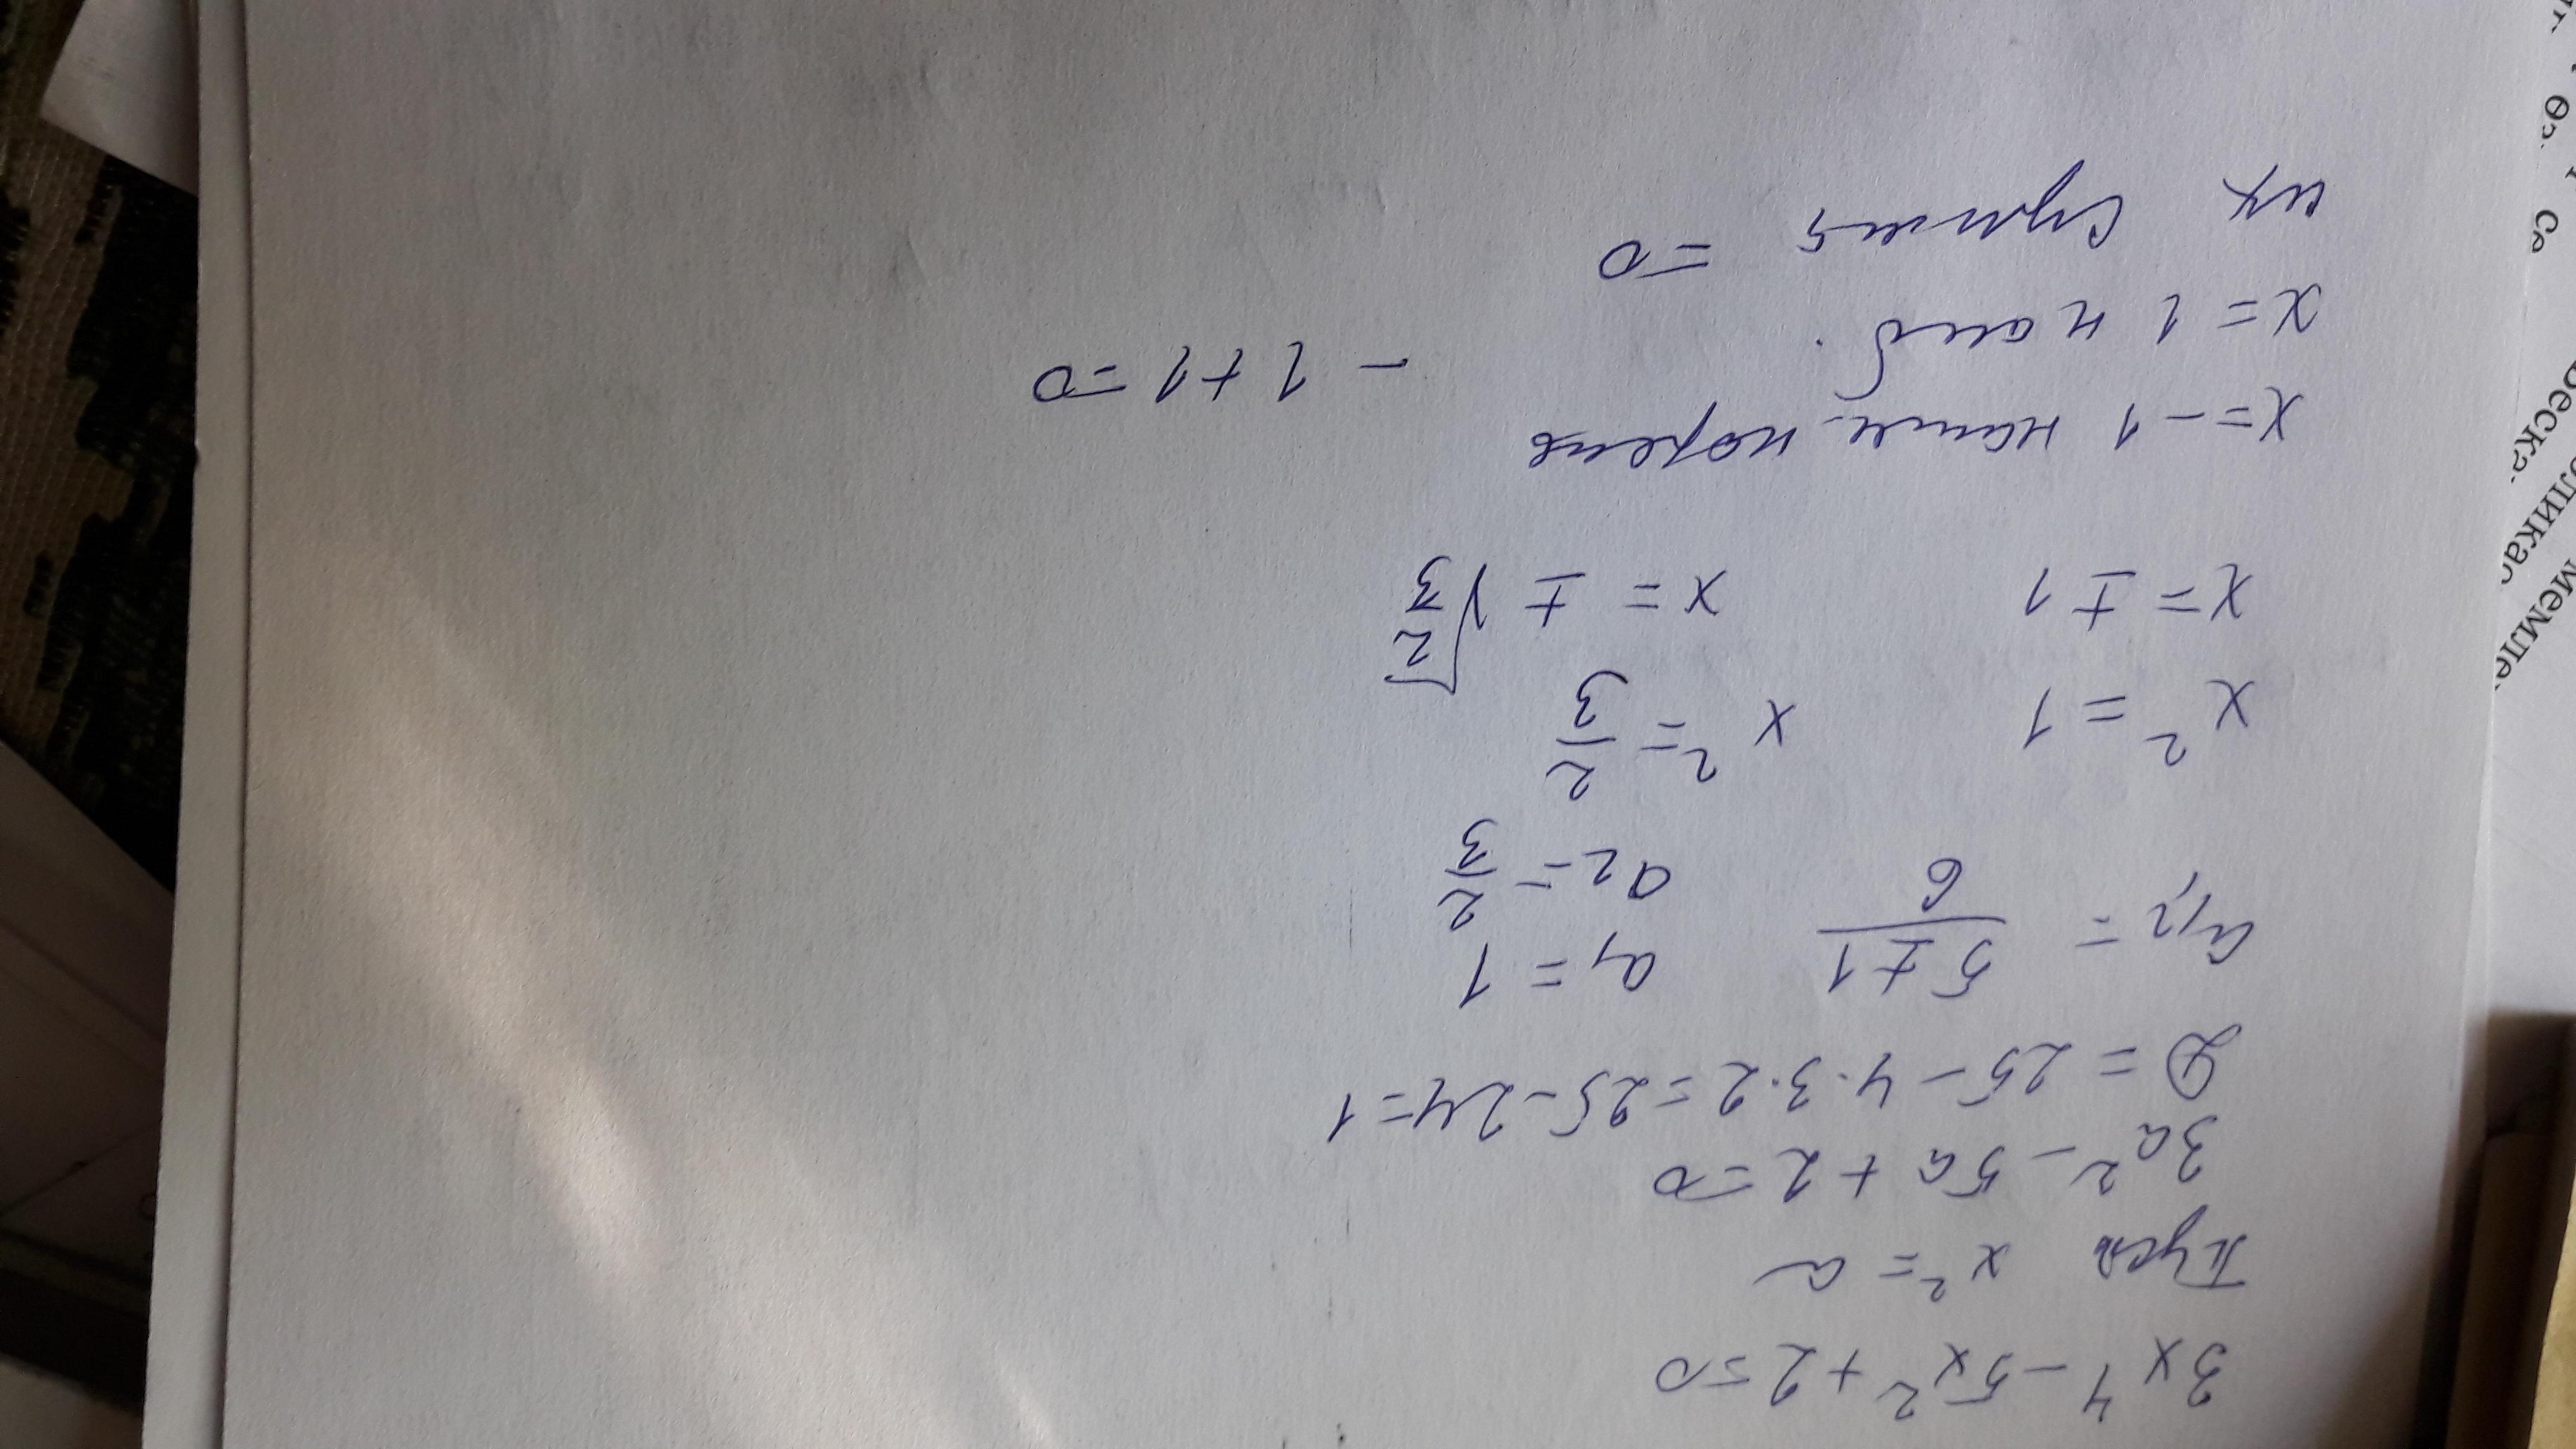 3x⁴ - 5x² + 2 = 0
Пусть x² = a
3a² - 5a + 2 = 0
D = 25 - 4·3·2 = 25 - 24 = 1
a₁,₂ = (5 ± 1)/6 a₁ = 1
a₂ = 2/3
x² = 1 x² = 2/3
x = ± 1 x = ± √(2/3)
x = -1 наим. корень
x = 1 наиб. - 1 + 1 = 0
их сумма = 0
Беск
ликас
Мемле
Се